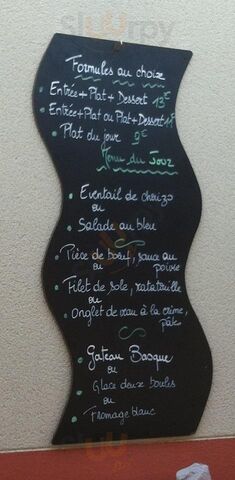 sluurpy
Formules au choix
• Entrée + Plat + Dessert 13€
• Entrée + Plat ou Plat + Dessert 11€
• Plat du jour 9€
Menu du Jour
• Eventail de chorizo
ou
• Salade au bleu
• Pièce de bœuf, sauce au
ou poivre
• Filet de sole, ratatouille
ou
• Onglet de veau à la crème,
pâtes
• Gateau Basque
• ou
• Glace deux boules
ou
• Fromage blanc
sluurpy